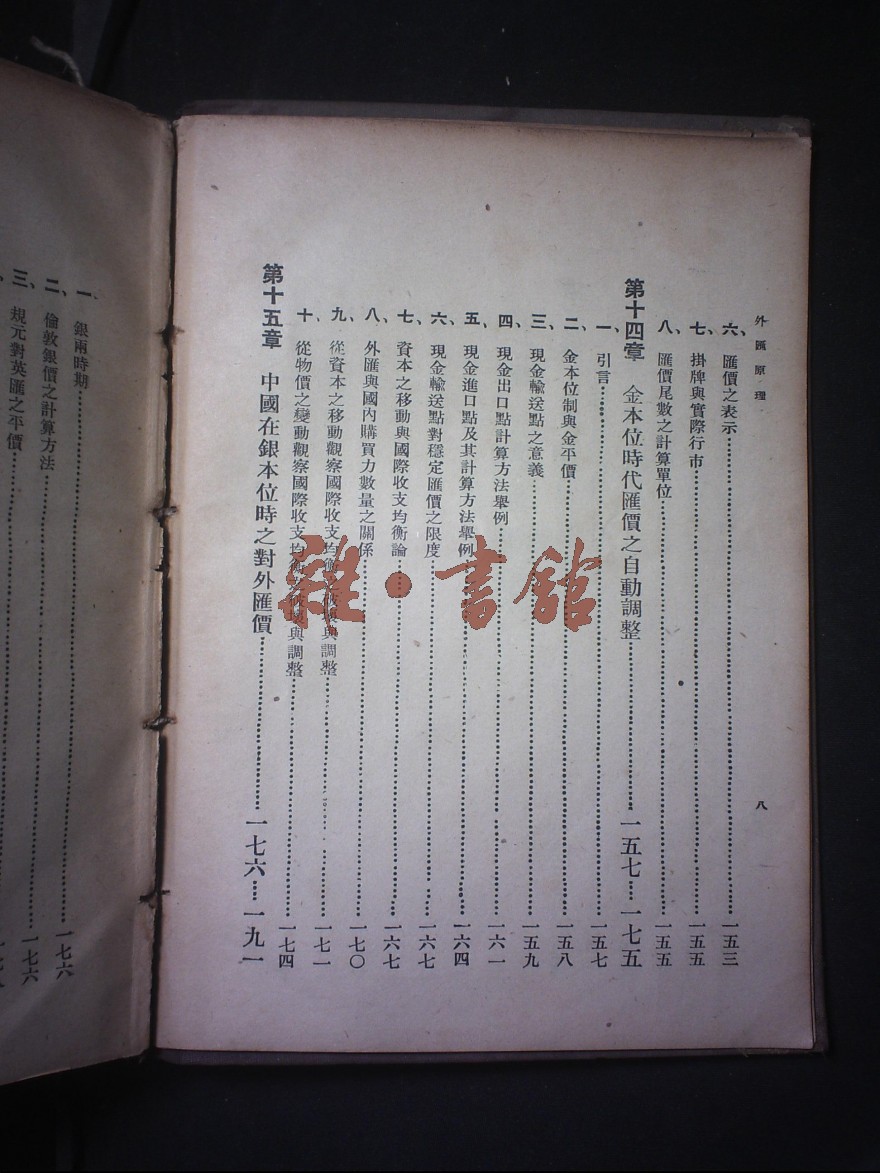 外匯原理
八
六、匯價之表示……一五三
七、掛牌與實際行市……一五五
八、匯價尾數之計算單位……一五五
第十四章 金本位時代匯價之自動調整……一五七……一七五
一、引言……一五七
二、金本位制與金平價……一五八
三、現金輸送點之意義……一五九
四、現金出口點計算方法舉例……一六一
五、現金進口點及其計算方法舉例……一六四
六、現金輸送點對穩定匯價之限度……一六七
七、資本之移動與國際收支均衡論……一六七
八、外匯與國內購買力數量之關係……一七〇
九、從資本之移動觀察國際收支均衡與調整……一七一
十、從物價之變動觀察國際收支均衡與調整……一七四
第十五章 中國在銀本位時之對外匯價……一七六……一九一
一、銀兩時期……一七六
二、倫敦銀價之計算方法……一七六
三、規元對英匯之平價
雜·書館